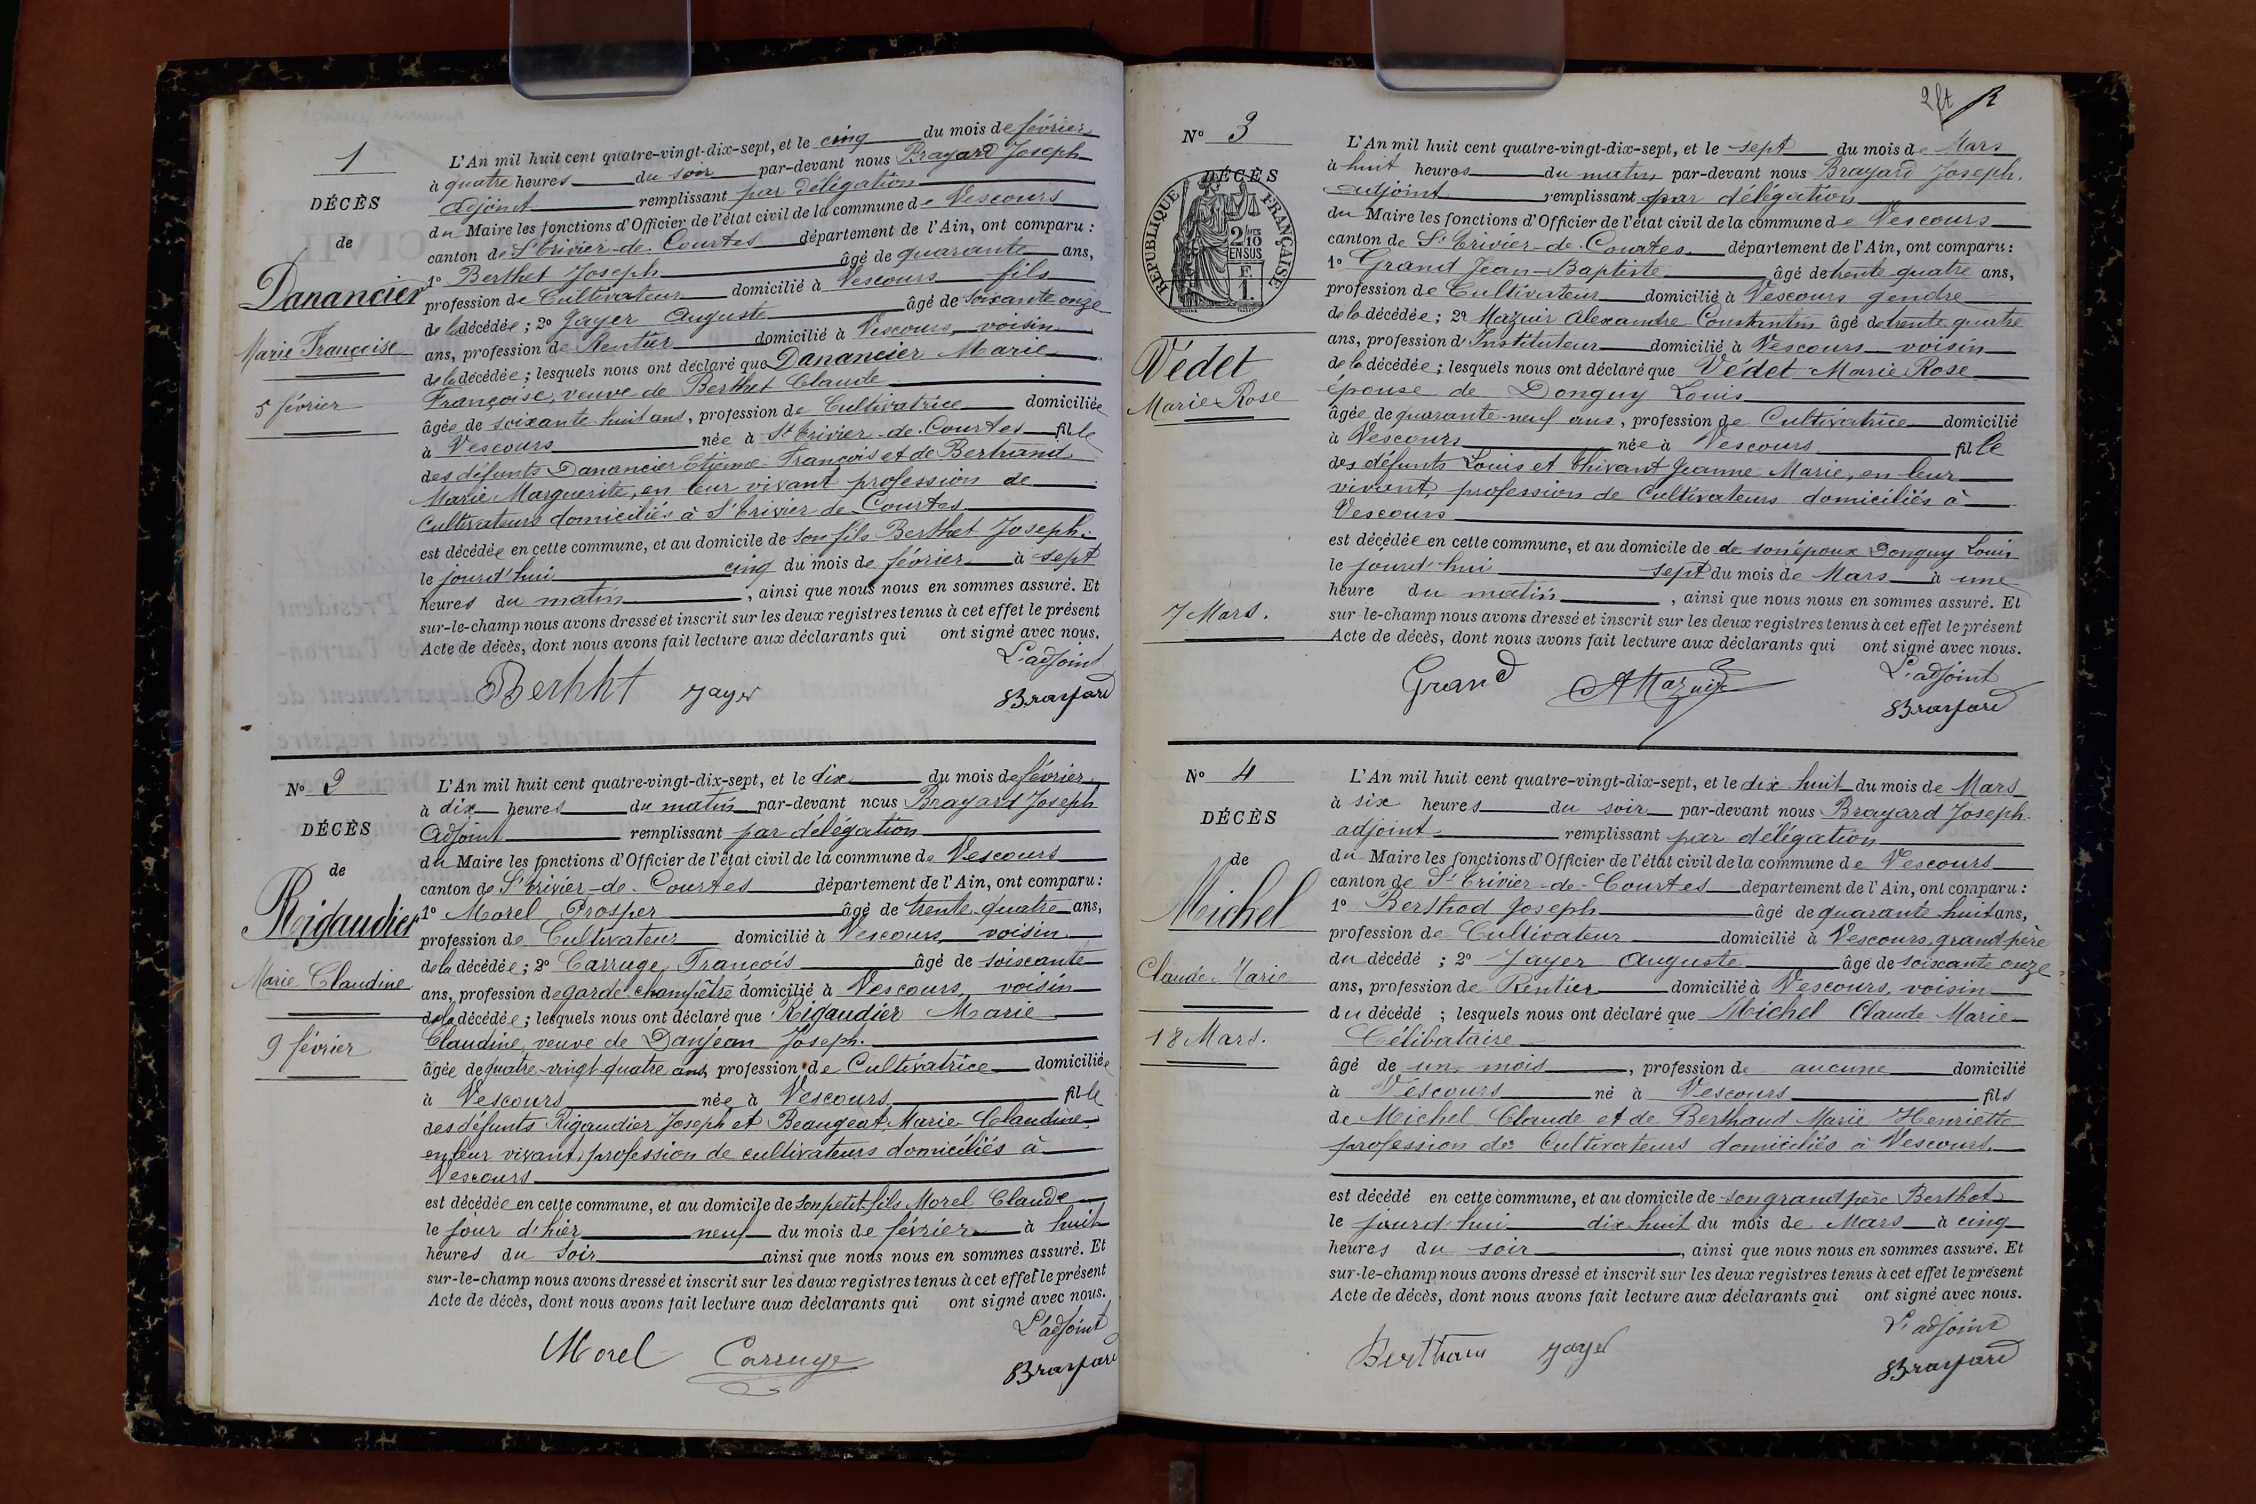 1
DÉCÈS
de
Danancier
Marie Françoise
5 février
L'An mil huit cent quatre-vingt-dix-sept, et le cinq du mois de février
à quatre heures du soir par-devant nous Brayard Joseph
adjoint remplissant par délégation
du Maire les fonctions d'Officier de l'état civil de la commune de Vescours
canton de St Trivier-de-Courtes département de l'Ain, ont comparu :
1º Berthet Joseph âgé de quarante ans,
profession de Cultivateur domicilié à Vescours fils
de la décédée ; 2º Jayer Auguste âgé de soixante onze
ans, profession de Rentier domicilié à Vescours, voisin
de la décédée ; lesquels nous ont déclaré que Danancier Marie
Françoise, veuve de Berthet Claude
âgée de soixante-huit ans, profession de Cultivatrice domiciliée
à Vescours née à St Trivier-de-Courtes fille
des défunts Danancier Etienne-François et de Bertrand
Marie Marguerite, en leur vivant profession de
Cultivateurs domiciliés à St Trivier de Courtes
est décédée en cette commune, et au domicile de son fils Berthet Joseph
le jourd'hui cinq du mois de février à sept
heures du matin, ainsi que nous nous en sommes assuré. Et
sur-le-champ nous avons dressé et inscrit sur les deux registres tenus à cet effet le présent
Acte de décès, dont nous avons fait lecture aux déclarants qui ont signé avec nous.
L'adjoint
Berthet Jayer Brayard
No 2
DÉCÈS
de
Rigaudier
Marie Claudine
9 février
L'An mil huit cent quatre-vingt-dix-sept, et le dix du mois de février
à dix heures du matin par-devant nous Brayard Joseph
Adjoint remplissant par délégation
du Maire les fonctions d'Officier de l'état civil de la commune de Vescours
canton de St Trivier-de-Courtes département de l'Ain, ont comparu :
1º Morel Prosper âgé de trente-quatre ans,
profession de Cultivateur domicilié à Vescours, voisin
de la décédée ; 2º Carruge François âgé de soixante
ans, profession de garde-champêtre domicilié à Vescours, voisin
de la décédée ; lesquels nous ont déclaré que Rigaudier Marie
Claudine, veuve de Danjean Joseph.
âgée de quatre-vingt-quatre ans, profession de Cultivatrice domiciliée
à Vescours née à Vescours fille
des défunts Rigaudier Joseph et Beaugeat Marie Claudine,
en leur vivant, profession de cultivateurs domiciliés à
Vescours
est décédée en cette commune, et au domicile de son petit-fils Morel Claude
le jour d'hier neuf du mois de février à huit
heures du soir ainsi que nous nous en sommes assuré. Et
sur-le-champ nous avons dressé et inscrit sur les deux registres tenus à cet effet le présent
Acte de décès, dont nous avons fait lecture aux déclarants qui ont signé avec nous.
L'adjoint
Morel Carruge Brayard
2 ft
No 3
DÉCÈS
RÉPUBLIQUE FRANÇAISE
2/10
EN SUS
F.
1.
Védet
Marie Rose
7 Mars.
L'An mil huit cent quatre-vingt-dix-sept, et le sept du mois de Mars
à huit heures du matin par-devant nous Brayard Joseph,
adjoint remplissant par délégation
du Maire les fonctions d'Officier de l'état civil de la commune de Vescours
canton de St Trivier-de-Courtes département de l'Ain, ont comparu :
1º Grand Jean-Baptiste âgé de trente-quatre ans,
profession de Cultivateur domicilié à Vescours gendre
de la décédée ; 2º Mazuir Alexandre Constantin âgé de trente quatre
ans, profession d'Instituteur domicilié à Vescours voisin
de la décédée ; lesquels nous ont déclaré que Védet Marie Rose
épouse de Donguy Louis
âgée de quarante-neuf ans, profession de Cultivatrice domicilié
à Vescours née à Vescours fille
des défunts Louis et Thivant Jeanne Marie, en leur
vivant, profession de Cultivateurs domiciliés à
Vescours
est décédée en cette commune, et au domicile de de son époux Donguy Louis
le jourd'hui sept du mois de Mars à une
heure du matin, ainsi que nous nous en sommes assuré. Et
sur-le-champ nous avons dressé et inscrit sur les deux registres tenus à cet effet le présent
Acte de décès, dont nous avons fait lecture aux déclarants qui ont signé avec nous.
L'adjoint
Grand AMazuir Brayard
No 4
DÉCÈS
de
Michel
Claude Marie
18 Mars.
L'An mil huit cent quatre-vingt-dix-sept, et le dix huit du mois de Mars
à six heures du soir par-devant nous Brayard Joseph
adjoint remplissant par délégation
du Maire les fonctions d'Officier de l'état civil de la commune de Vescours
canton de St Trivier-de-Courtes département de l'Ain, ont comparu :
1º Berthod Joseph âgé de quarante huit ans,
profession de Cultivateur domicilié à Vescours, grand-père
du décédé ; 2º Jayer Auguste âgé de soixante onze
ans, profession de Rentier domicilié à Vescours, voisin
du décédé ; lesquels nous ont déclaré que Michel Claude Marie
Célibataire
âgé de un mois, profession de aucune domicilié
à Vescours né à Vescours fils
de Michel Claude et de Berthaud Marie Henriette
profession de Cultivateurs domiciliés à Vescours.
est décédé en cette commune, et au domicile de son grand père Berthot
le jourd'hui dix huit du mois de Mars à cinq
heures du soir, ainsi que nous nous en sommes assuré. Et
sur-le-champ nous avons dressé et inscrit sur les deux registres tenus à cet effet le présent
Acte de décès, dont nous avons fait lecture aux déclarants qui ont signé avec nous.
L'adjoint
Jayer Brayard